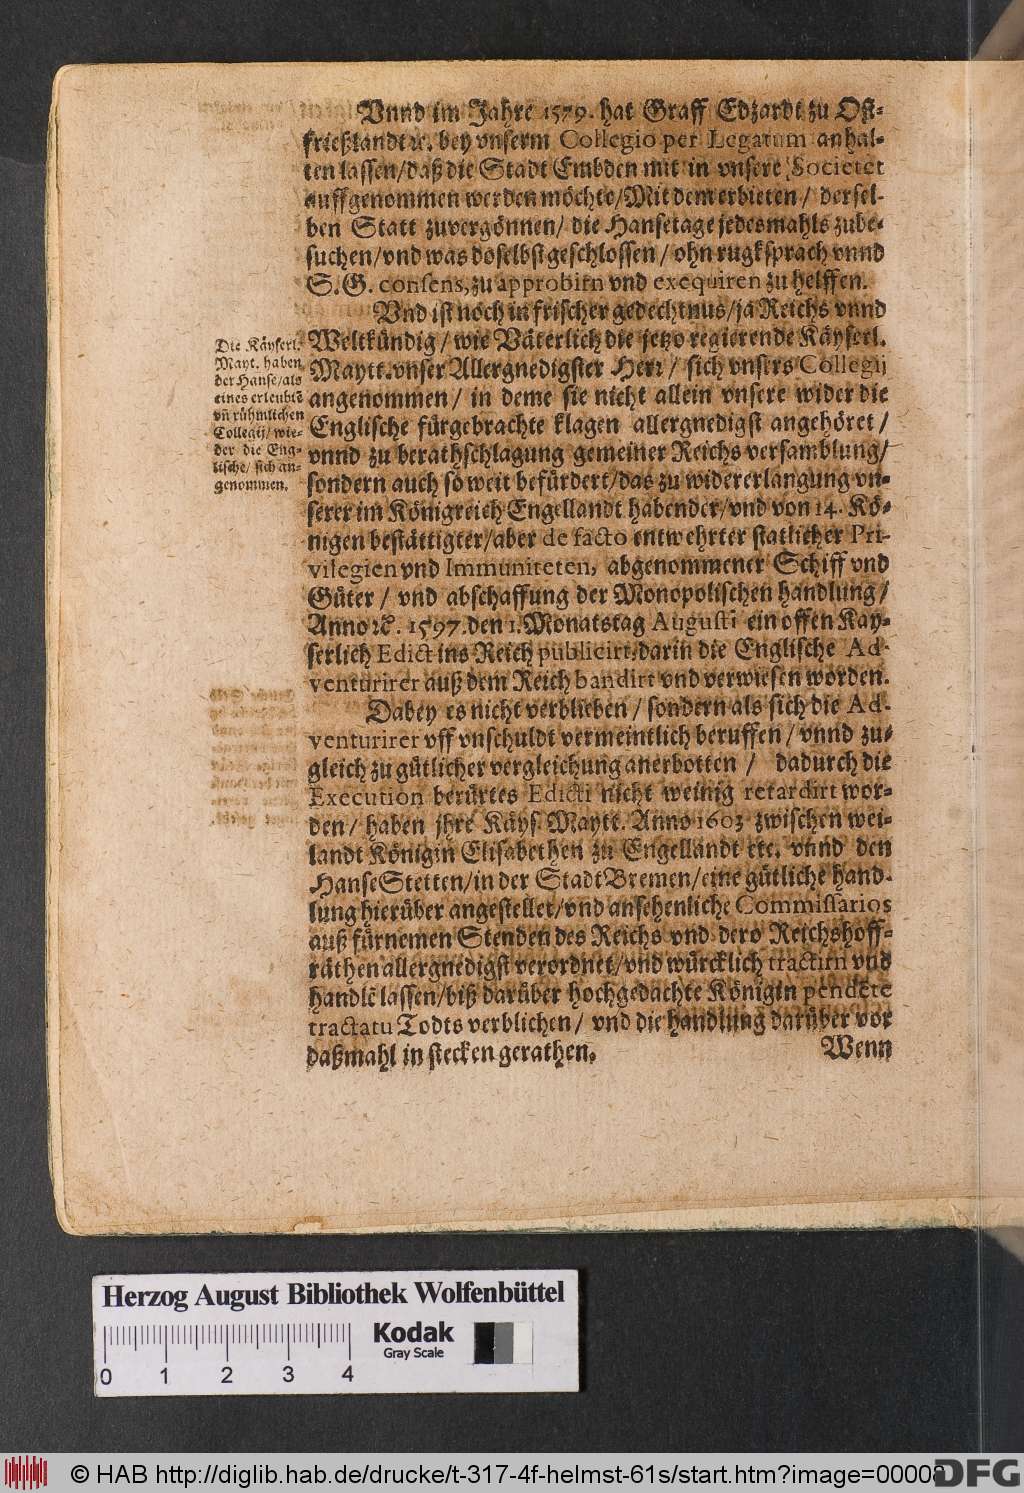 Vnnd im Jahre 1579. hat Graff Edzardt zu Ost-
frießlandt ꝛc. bey vnserm Collegio per Legatum anhal-
ten lassen/daß die Stadt Embden mit in vnsere Societet
auffgenommen werden möchte/Mit dem erbieten/ dersel-
ben Statt zuvergönnen/ die Hansetage jedesmahls zube-
suchen/vnd was doselbst geschlossen/ ohn rugksprach vnnd
S. G. consens, zu approbirn vnd exequiren zu helffen.
Vnd ist noch in frischer gedechtnus/ja Reichs vnnd
Weltkündig/ wie Väterlich die jetzo regierende Käyserl.
Maytt. vnser Allergnedigster Herr/ sich vnsers Collegij
angenommen/ in deme sie nicht allein vnsere wider die
Englische fürgebrachte klagen allergnedigst angehöret/
vnnd zu berathschlagung gemeiner Reichs versamblung/
sondern auch so weit befürdert/das zu widererlangung vn-
serer im Königreich Engellandt habender/vnd von 14. Kö-
nigen bestättigter/aber de facto entwehrter statlicher Pri-
vilegien vnd Immuniteten, abgenommener Schiff vnd
Güter/ vnd abschaffung der Monopolischen handlung/
Anno ꝛc. 1597. den 1. Monatstag Augusti ein offen Kay-
serlich Edict ins Reich publicirt, darin die Englische Ad-
venturirer auß dem Reich bandirt vnd verwiesen worden.
Dabey es nicht verblieben/ sondern als sich die Ad-
venturirer vff vnschuldt vermeintlich beruffen/ vnnd zu-
gleich zu gütlicher vergleichung anerbotten/ dadurch die
Execution berürtes Edicti nicht weinig retardirt wor-
den/ haben jhre Käys. Maytt. Anno 1603 zwischen wei-
landt Königin Elisabethen zu Engellandt etc. vnnd den
HanseStetten/in der Stadt Bremen/eine gütliche hand-
lung hierüber angestellet/vnd ansehenliche Commissarios
auß fürnemen Stenden des Reichs vnd dero Reichshoff-
räthen allergnedigst verordnet/vnd würcklich tractirn vnd
handlē lassen/biß darüber hochgedachte Königin pendēte
tractatu Todts verblichen/ vnd die handlung darüber vor
daßmahl in stecken gerathen.
Wenn
Die Käyserl.
Mayt. haben
der Hanse/als
eines erleubtē
vn̄ rühmlichen
Collegij/ wie-
der die Eng-
lische/ sich an-
genommen.
Herzog August Bibliothek Wolfenbüttel
Kodak
Gray Scale
0 1 2 3 4
© HAB http://diglib.hab.de/drucke/t-317-4f-helmst-61s/start.htm?image=00008
DFG